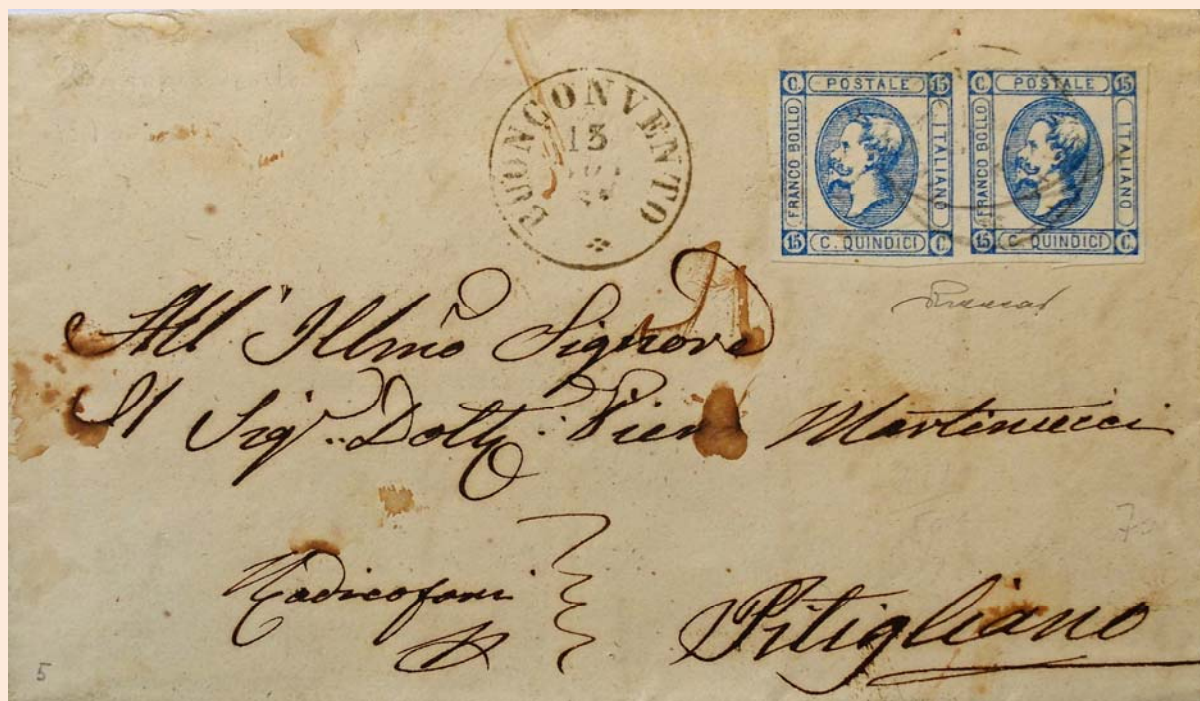 BUONCONVENTO
13
C. POSTALE 15
FRANCO BOLLO
ITALIANO
15 C. QUINDICI C
C. POSTALE 15
FRANCO BOLLO
ITALIANO
15 C. QUINDICI C
All' Illmo Signore
Il Sigr. Dottr. Martinucci
Radicofani
Pitigliano
5